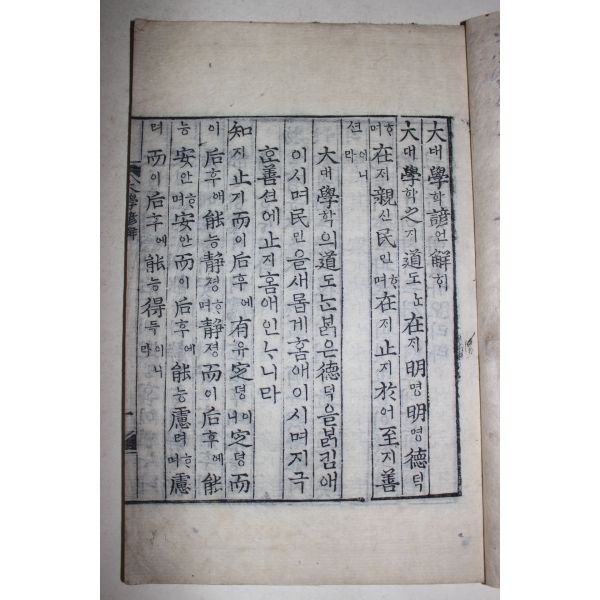 大대學학諺언解ᄒᆡ
大대學학之지道도ᄂᆞᆫ在ᄌᆡ明명明명德덕
ᄒᆞ며在ᄌᆡ親신民민ᄒᆞ며在ᄌᆡ止지於어至지善
션이니라
大대學학의道도ᄂᆞᆫᄇᆞᆰ은德덕을ᄇᆞᆰ킴애
이시며民민을새롭게홈애이시며지극
ᄒᆞᆫ善션에止지홈애인ᄂᆞ니라
知지止지而이后후에有유定뎡이니定뎡而
이后후에能능靜졍ᄒᆞ며靜졍而이后후에能
능安안ᄒᆞ며安안而이后후에能능慮려ᄒᆞ며慮
려而이后후에能능得득이니라
大學諺解
一